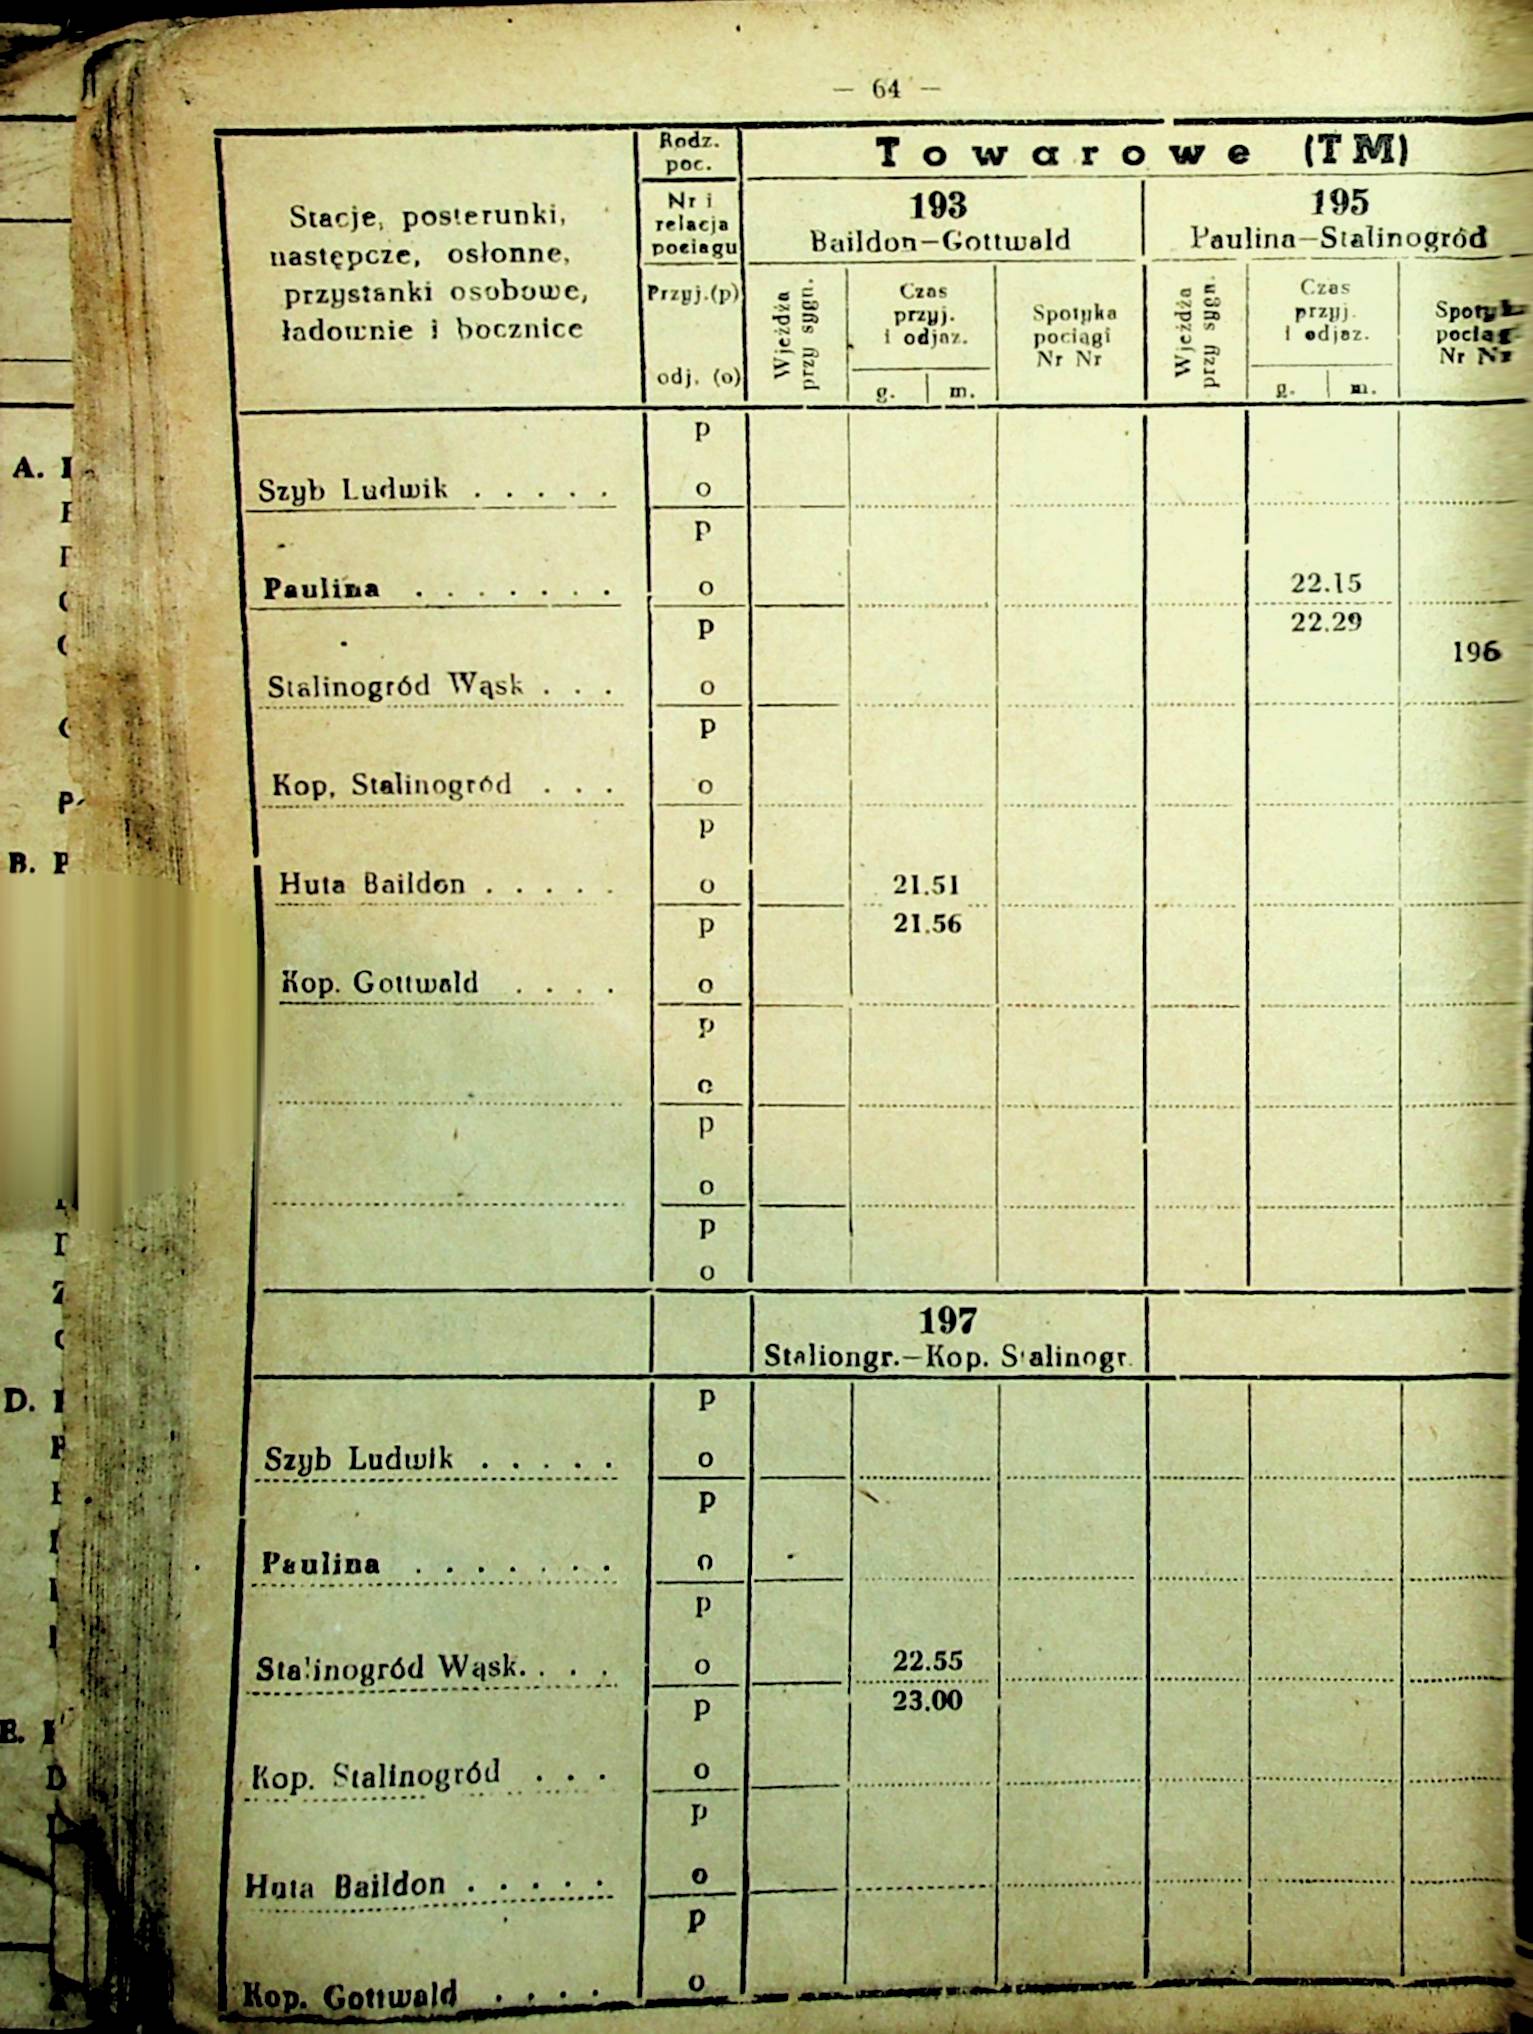 — 64 —
Stacje, posterunki,
następcze, osłonne,
przystanki osobowe,
ładownie i bocznice
Rodz.
poc.
Nr i
relacja
pociagu
Przyj.(p)
odj. (o)
Towarowe (TM)
193
Baildon—Gottwald
195
Paulina—Stalinogród
Wjeżdża
przy sygn.
Czas
przyj.
i odjaz.
g. m.
Spotyka
pociągi
Nr Nr
Wjeżdża
przy sygn.
Czas
przyj.
i odjaz.
g. m.
Nr Nr
p
Szyb Ludwik . . . . . o
p
Paulina . . . . . . . o 22.15
p 22.29
196
Stalinogród Wąsk . . . o
p
Kop, Stalinogród . . . o
p
Huta Baildon . . . . . o 21.51
p 21.56
Kop. Gottwald . . . . o
p
o
p
o
p
o
197
Staliongr.—Kop. Stalinogr.
p
Szyb Ludwik . . . . . o
p
Paulina . . . . . . . o
p
Stalinogród Wąsk. . . . o 22.55
p 23.00
Kop. Stalinogród . . . o
p
Huta Baildon . . . . . o
p
Kop. Gottwald . . . . o
A.
B. P
D.
E.